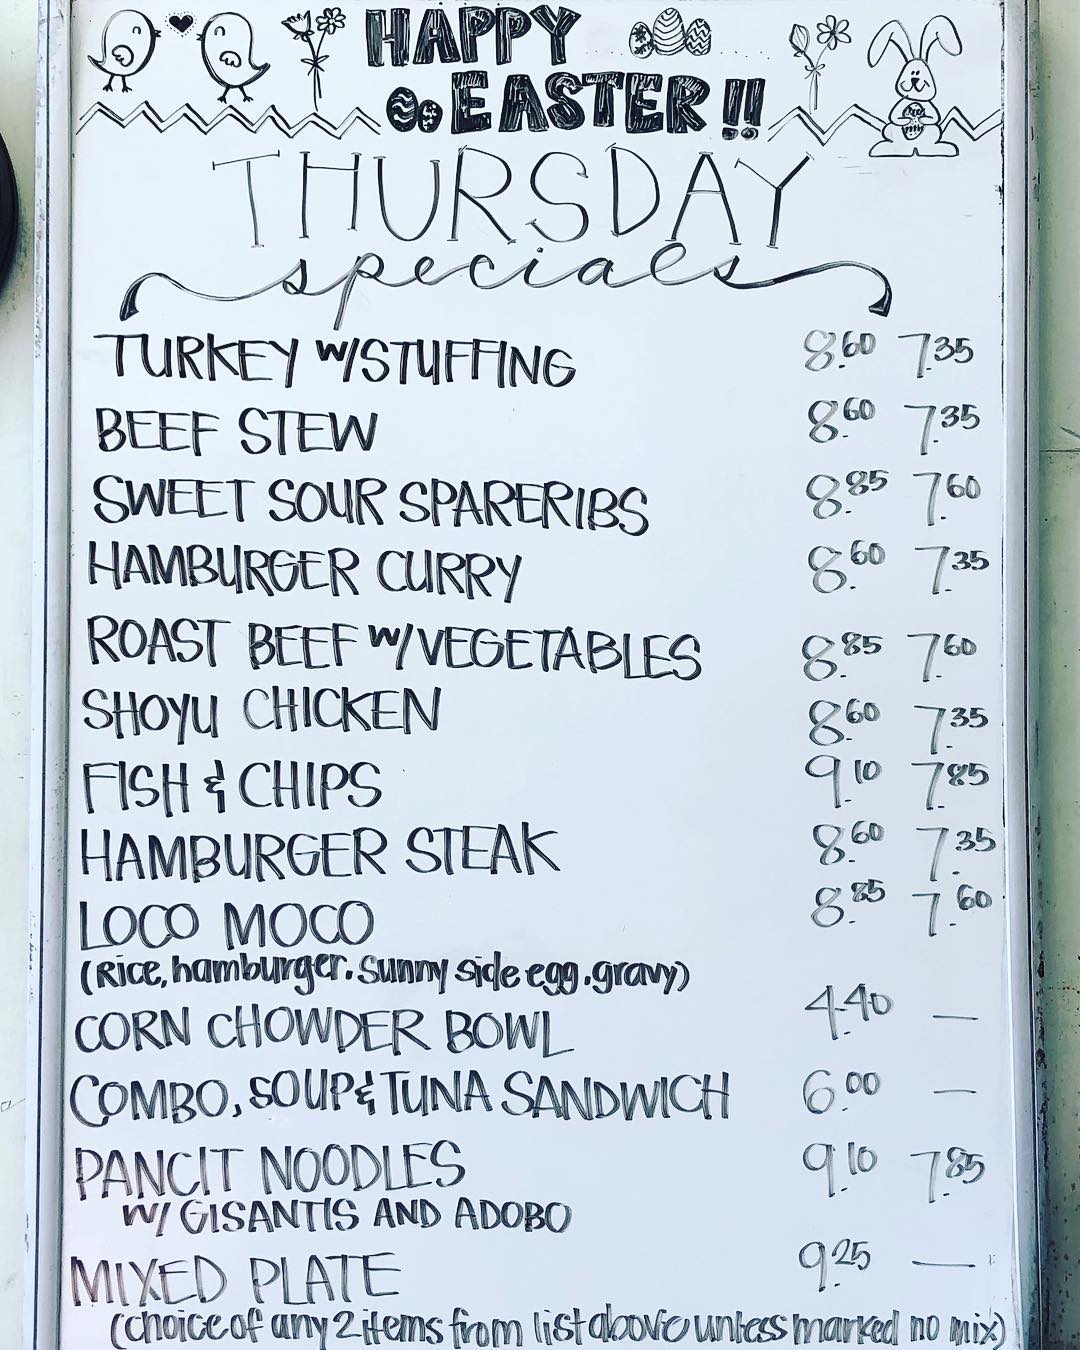 HAPPY
EASTER!!
THURSDAY
specials
TURKEY W/STUFFING 8.60 7.35
BEEF STEW 8.60 7.35
SWEET SOUR SPARERIBS 8.85 7.60
HAMBURGER CURRY 8.60 7.35
ROAST BEEF W/VEGETABLES 8.85 7.60
SHOYU CHICKEN 8.60 7.35
FISH & CHIPS 9.10 7.85
HAMBURGER STEAK 8.60 7.35
LOCO MOCO 8.85 7.60
(Rice, hamburger. Sunny side egg. gravy)
CORN CHOWDER BOWL 4.40 —
COMBO, SOUP & TUNA SANDWICH 6.00 —
PANCIT NOODLES 9.10 7.85
W/ GISANTIS AND ADOBO
MIXED PLATE 9.25 —
(choice of any 2 items from list above unless marked no mix)